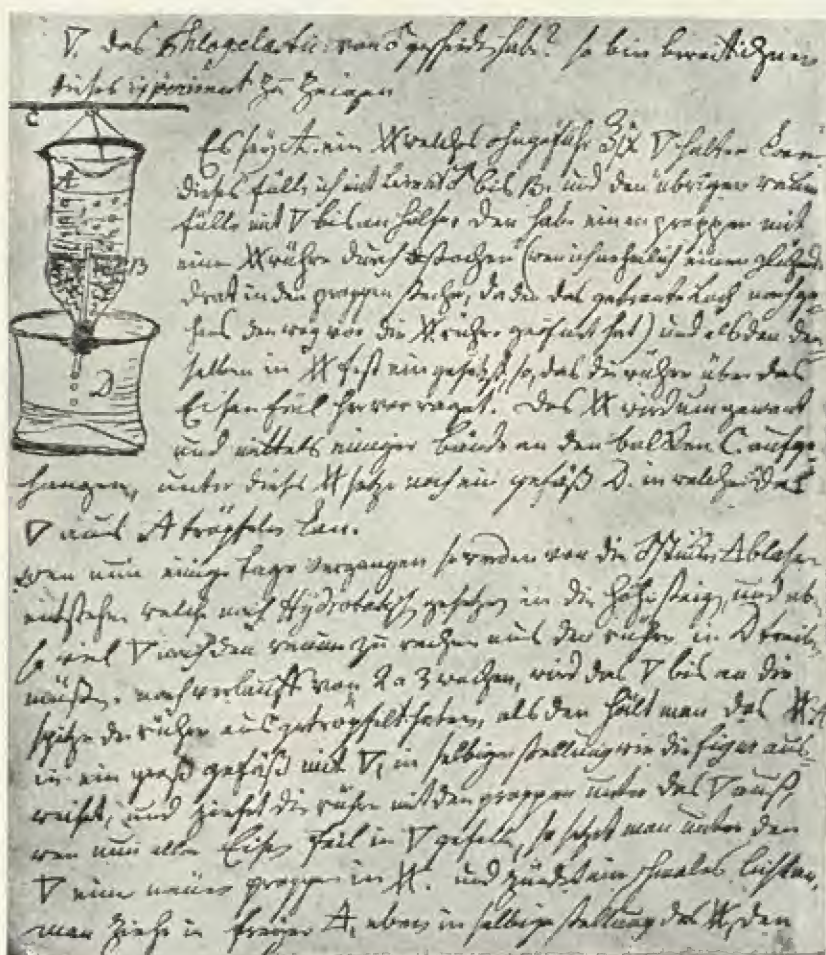 ▽. das Phlogelastic: von ♂ geschieden habe? so bin bereit ihnen
dieses experiment zu zeigen
C
Es seye A. ein welches ohngefähr ▽ halten kan
dieses fülle ich mit ♂ bis B. und den übrigen raum
fülle mit ▽ bis an halse. Der habe einen proppen mit
eine röhre durch stochen (wen ich nehmlich einen glühend
drat in den proppen steche, da den das gebrante Loch nachge-
hens den weg vor die röhre geöfnet hat) und alsden den
selben in fest eingesetzt, so, das die röhre über das
Eisen feil hervor raget. Das wird umgewant
und mittels einiger bände an den balken C. aufge-
hangen, unter dieses setze noch ein gefäß D. in welches das
▽ aus A tröpfeln kan.
A
B
D
wen nun einige tage vergangen so werden von die
entstehen welche nach Hydrostatisch gesetzen in die Höhe steigen, und eben
so viel ▽ nach den raum zu rechen aus der röhre in D treiben
müßen. nach verlauff von 2 a 3 wochen, wird das ▽ bis an die
spitze der röhre aus getröpfelt haben, als den hält man das A
in ein groß gefäß mit ▽, in selbiger stellung wie die figur aus-
weiset, und ziehet die röhre mit den proppen unter das ▽ auß,
wen nun alle Eisen feil in ▽ gefallen, so setzet man unter den
▽ eine neuen proppen in und zündet ein schmales lichtken,
man ziehe in freyer eben in selbige stellung des den